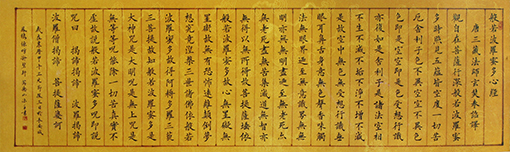 般若波羅蜜多心經
唐三藏法師玄奘奉詔譯
觀自在菩薩行深般若波羅蜜
多時照見五蘊皆空度一切苦
厄舍利子色不異空空不異色
色即是空空即是色受想行識
亦復如是舍利子是諸法空相
不生不滅不垢不淨不增不減
是故空中無色無受想行識無
眼耳鼻舌身意無色聲香味觸
法無眼界乃至無意識界無無
明亦無無明盡乃至無老死亦
無老死盡無苦集滅道無智亦
無得以無所得故菩提薩埵依
般若波羅蜜多故心無罣礙無
罣礙故無有恐怖遠離顛倒夢
想究竟涅槃三世諸佛依般若
波羅蜜多故得阿耨多羅三藐
三菩提故知般若波羅蜜多是
大神咒是大明咒是無上咒是
無等等咒能除一切苦真實不
虛故說般若波羅蜜多咒即說
咒曰 揭諦揭諦 波羅揭諦
波羅僧揭諦 菩提薩婆訶